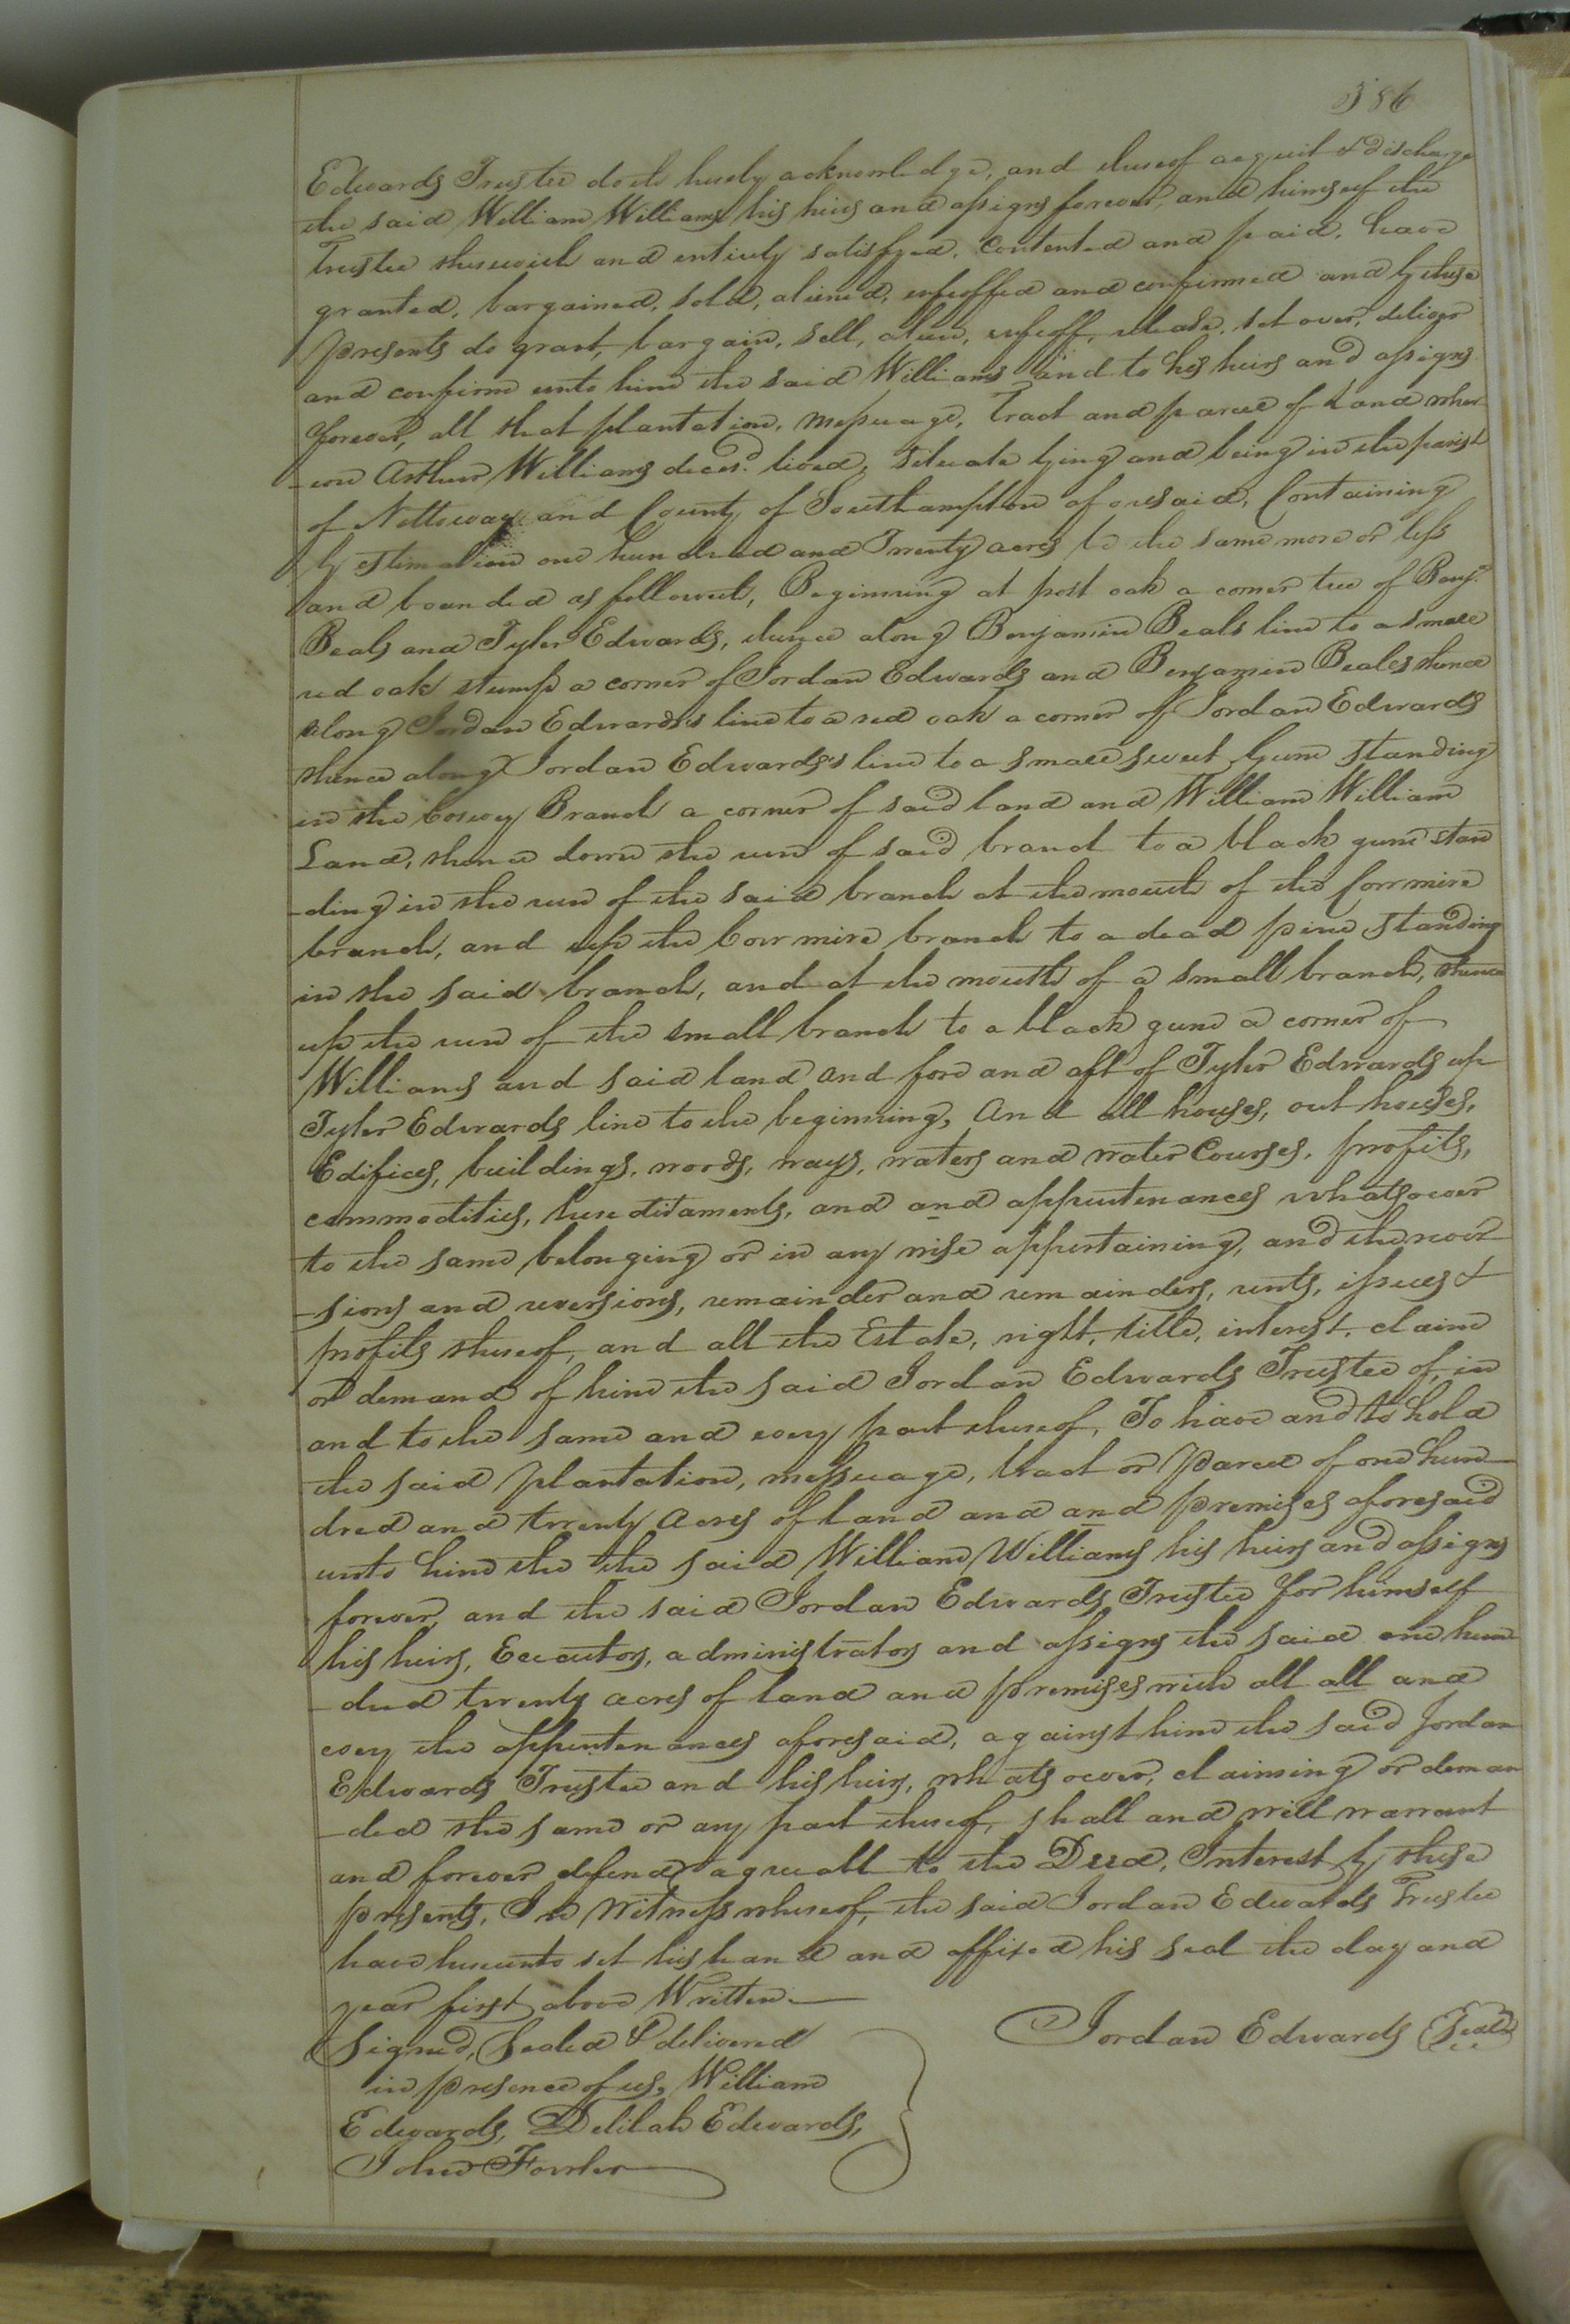 386
Edwards Trustee doth hereby acknowledge, and thereof acquit & discharge
the said William Williams his heirs and assigns forever, and himself the
Trustee therewith and entirely satisfyed, Contented and paid, have
granted, bargained, sold, aliened, enfeoffed and confirmed and by these
presents do grant, bargain, sell, alien, enfeoff, release, set over, deliver
and confirm unto him the said Williams and to his heirs and assigns
forever, all that plantation, messuage, Tract and parcel of Land wher
-eon Arthur Williams decesd. lived, Situate lying and being in the parish
of Nottoway and County of Southampton aforesaid, Containing
by Estimation one hundred and Twenty acres be the same more or less
and bounded as followeth, Beginning at post oak a corner tree of Benjn.
Beals and Tyler Edwards, thence along Benjamin Beals line to a small
red oak stump a corner of Jordan Edwards and Benjamin Beales thence
along Jordan Edwards's line to a red oak a corner of Jordan Edwards
thence along Jordan Edwards's line to a small sweet Gum standing
in the Branch a corner of said land and William William
Land, thence down the run of said branch to a black gum stan
-ding in the run of the said branch at the mouth of the Cowmire
branch, and up the Cowmire branch to a dead pine standing
in the said branch, and at the mouth of a small branch, thence
up the run of the small branch to a black gum a corner of
Williams and said land and fore and aft of Tyler Edwards up
Tyler Edwards line to the beginning, And all houses, out houses,
Edifices, buildings, woods, ways, waters and water Courses, profits,
commodities, hereditaments, and and appurtenances whatsoever
to the same belonging or in any wise appertaining, and the rever
-sions and reversions, remainder and remainders, rents, issues &
profits thereof, and all the Estate, right, title, interest, claim
or demand of him the said Jordan Edwards Trustee of, in
and to the same and every part thereof, To have and to hold
the said plantation, messuage, tract or parcel of one hun
dred and twenty Acres of land and and premises aforesaid
unto him the the said William Williams his heirs and assigns
forever, and the said Jordan Edwards Trustee for himself
his heirs, Executors, administrators and assigns the said one hun
-dred twenty acres of land and premises with all all and
every the appurtenances aforesaid, against him the said Jordan
Edwards Trustee and his heirs, whatsoever, claiming or deman
-ded the same or any part thereof, shall and will warrant
and forever defend agreeall to the Deed, Interest by these
presents, In Witness whereof, the said Jordan Edwards Trustee
have hereunto set his hand and affixed his seal the day and
year first above Written.
Signed, Sealed & delivered
in presence of us, William
Edwards, Delilah Edwards,
John Fowler
Jordan Edwards Seal